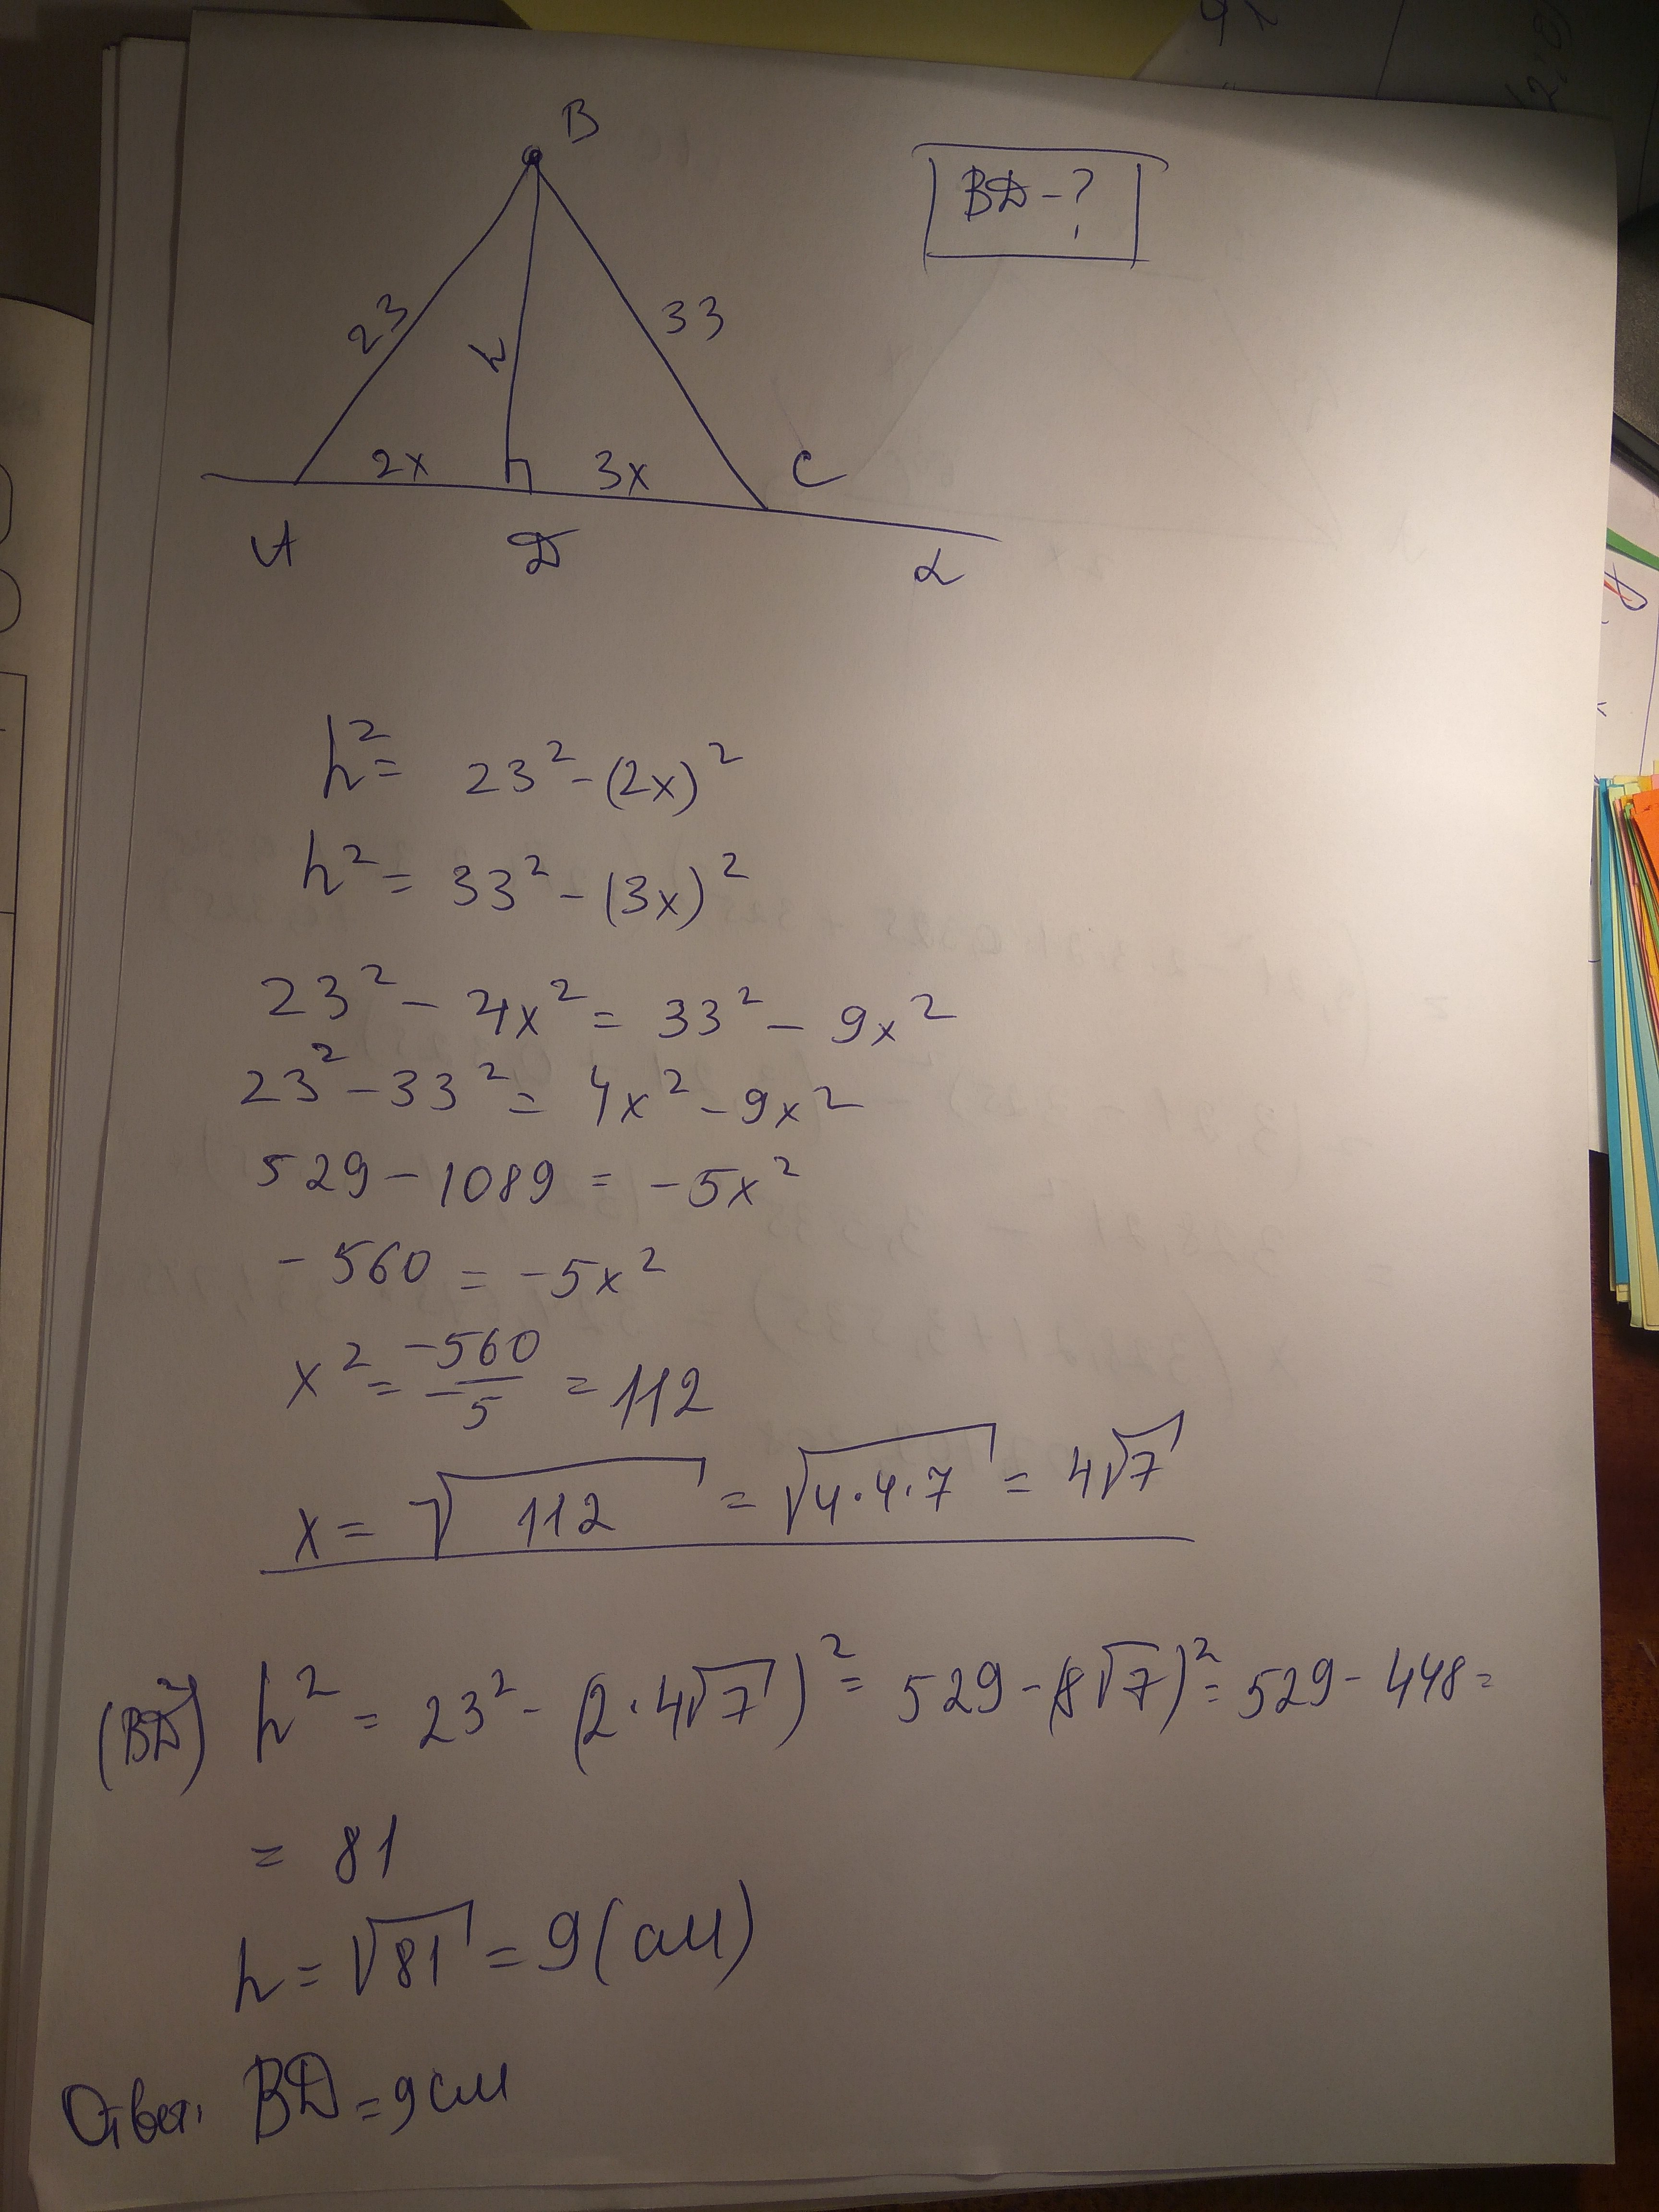 B
BD-?
23
33
h
2x
3x
C
A
D
α
h²= 23²-(2x)²
h²= 33²-(3x)²
23²- 4x²= 33²- 9x²
23²-33²= 4x²-9x²
529-1089 = -5x²
-560 = -5x²
x²= -560/-5 = 112
x= √112 = √4·4·7 = 4√7
(BD²) h² = 23²- (2·4√7)²= 529-(8√7)²= 529-448=
= 81
h= √81 = 9(см)
Ответ: BD=9см